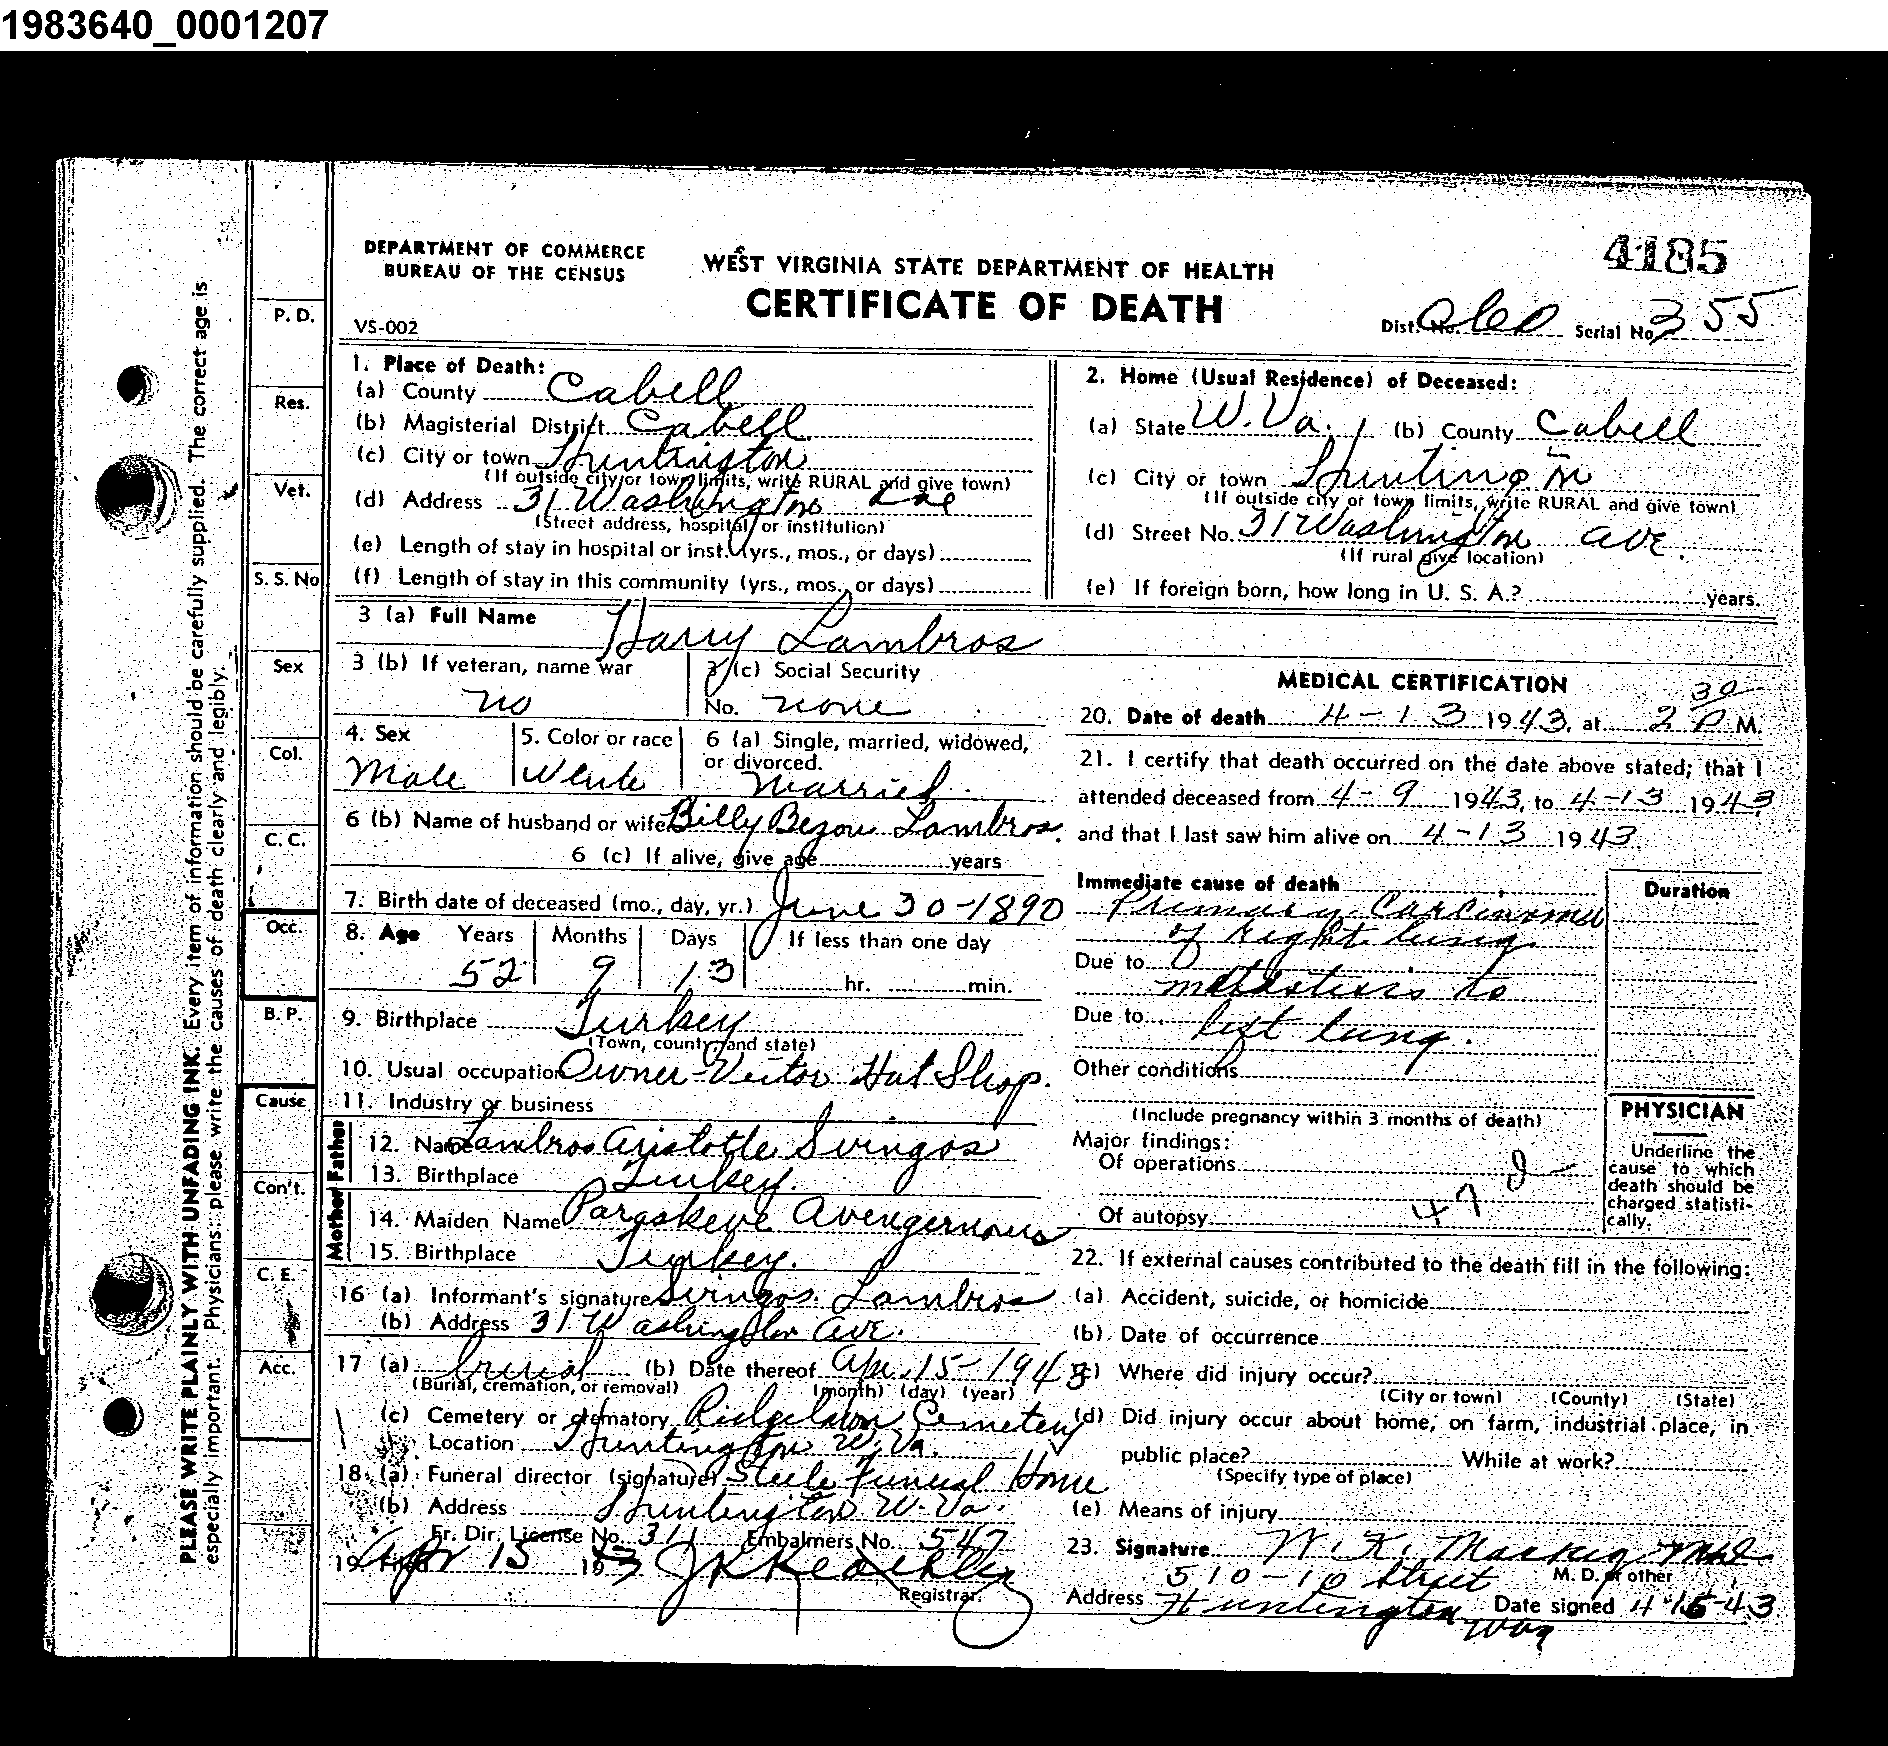 1983640_0001207
DEPARTMENT OF COMMERCE
BUREAU OF THE CENSUS
VS-002
WEST VIRGINIA STATE DEPARTMENT OF HEALTH
CERTIFICATE OF DEATH
4185
Dist. No. Serial No. 355
PLEASE WRITE PLAINLY WITH UNFADING INK. Every item of information should be carefully supplied. The correct age is
especially important. Physicians: please write the causes of death clearly and legibly.
P. D.
Res.
Vet.
S. S. No
Sex
Col.
C. C.
Occ.
B. P.
Cause
Con't.
C. E.
Acc.
1. Place of Death:
(a) County Cabell
(b) Magisterial District Cabell
(c) City or town Huntington
(If outside city or town limits, write RURAL and give town)
(d) Address 31 Washington Ave
(Street address, hospital, or institution)
(e) Length of stay in hospital or inst. (yrs., mos., or days)
(f) Length of stay in this community (yrs., mos., or days)
2. Home (Usual Residence) of Deceased:
(a) State W. Va. (b) County Cabell
(c) City or town Huntington
(If outside city or town limits, write RURAL and give town)
(d) Street No. 31 Washington Ave.
(If rural give location)
(e) If foreign born, how long in U. S. A.? years.
3 (a) Full Name Harry Lambros
3 (b) If veteran, name war
no
3 (c) Social Security
No. none
4. Sex
Male
5. Color or race
White
6 (a) Single, married, widowed,
or divorced.
Married.
6 (b) Name of husband or wife Billy Bezou Lambros.
6 (c) If alive, give age years
7. Birth date of deceased (mo., day, yr.) June 30-1890
8. Age Years Months Days If less than one day
52 9 13 hr. min.
9. Birthplace Turkey
(Town, county, and state)
10. Usual occupation Owner Hat Shop.
11. Industry or business
Father
12. Name Lambros Aristotle Svingos
13. Birthplace Turkey.
Mother
14. Maiden Name Paraskeve
15. Birthplace Turkey.
16 (a) Informant's signature Svingos Lambros
(b) Address 31 Washington Ave.
17 (a) burial (b) Date thereof Apr. 15-1943
(Burial, cremation, or removal) (month) (day) (year)
(c) Cemetery or crematory Ridgelawn Cemetery
Location Huntington W. Va.
18. (a) Funeral director (signature) Steele Funeral Home
(b) Address Huntington W. Va.
Fr. Dir. License No. 311 Embalmers No. 547
19. Apr 15
Registrar.
MEDICAL CERTIFICATION
20. Date of death 4-13 1943, at 2 30 P M.
21. I certify that death occurred on the date above stated; that I
attended deceased from 4-9 1943, to 4-13 1943
and that I last saw him alive on 4-13 1943
Immediate cause of death
Primary Carcinoma
of right lung.
Due to
metastisis to
Due to left lung.
Other conditions
(Include pregnancy within 3 months of death)
Major findings:
Of operations
Of autopsy
47
Duration
PHYSICIAN
Underline the
cause to which
death should be
charged statisti-
cally.
22. If external causes contributed to the death fill in the following:
(a) Accident, suicide, or homicide
(b) Date of occurrence
(c) Where did injury occur?
(City or town) (County) (State)
(d) Did injury occur about home, on farm, industrial place, in
public place? While at work?
(Specify type of place)
(e) Means of injury
23. Signature W. K. M.D.
M. D. or other
510-10 Street
Address Huntington Date signed 4-15-43